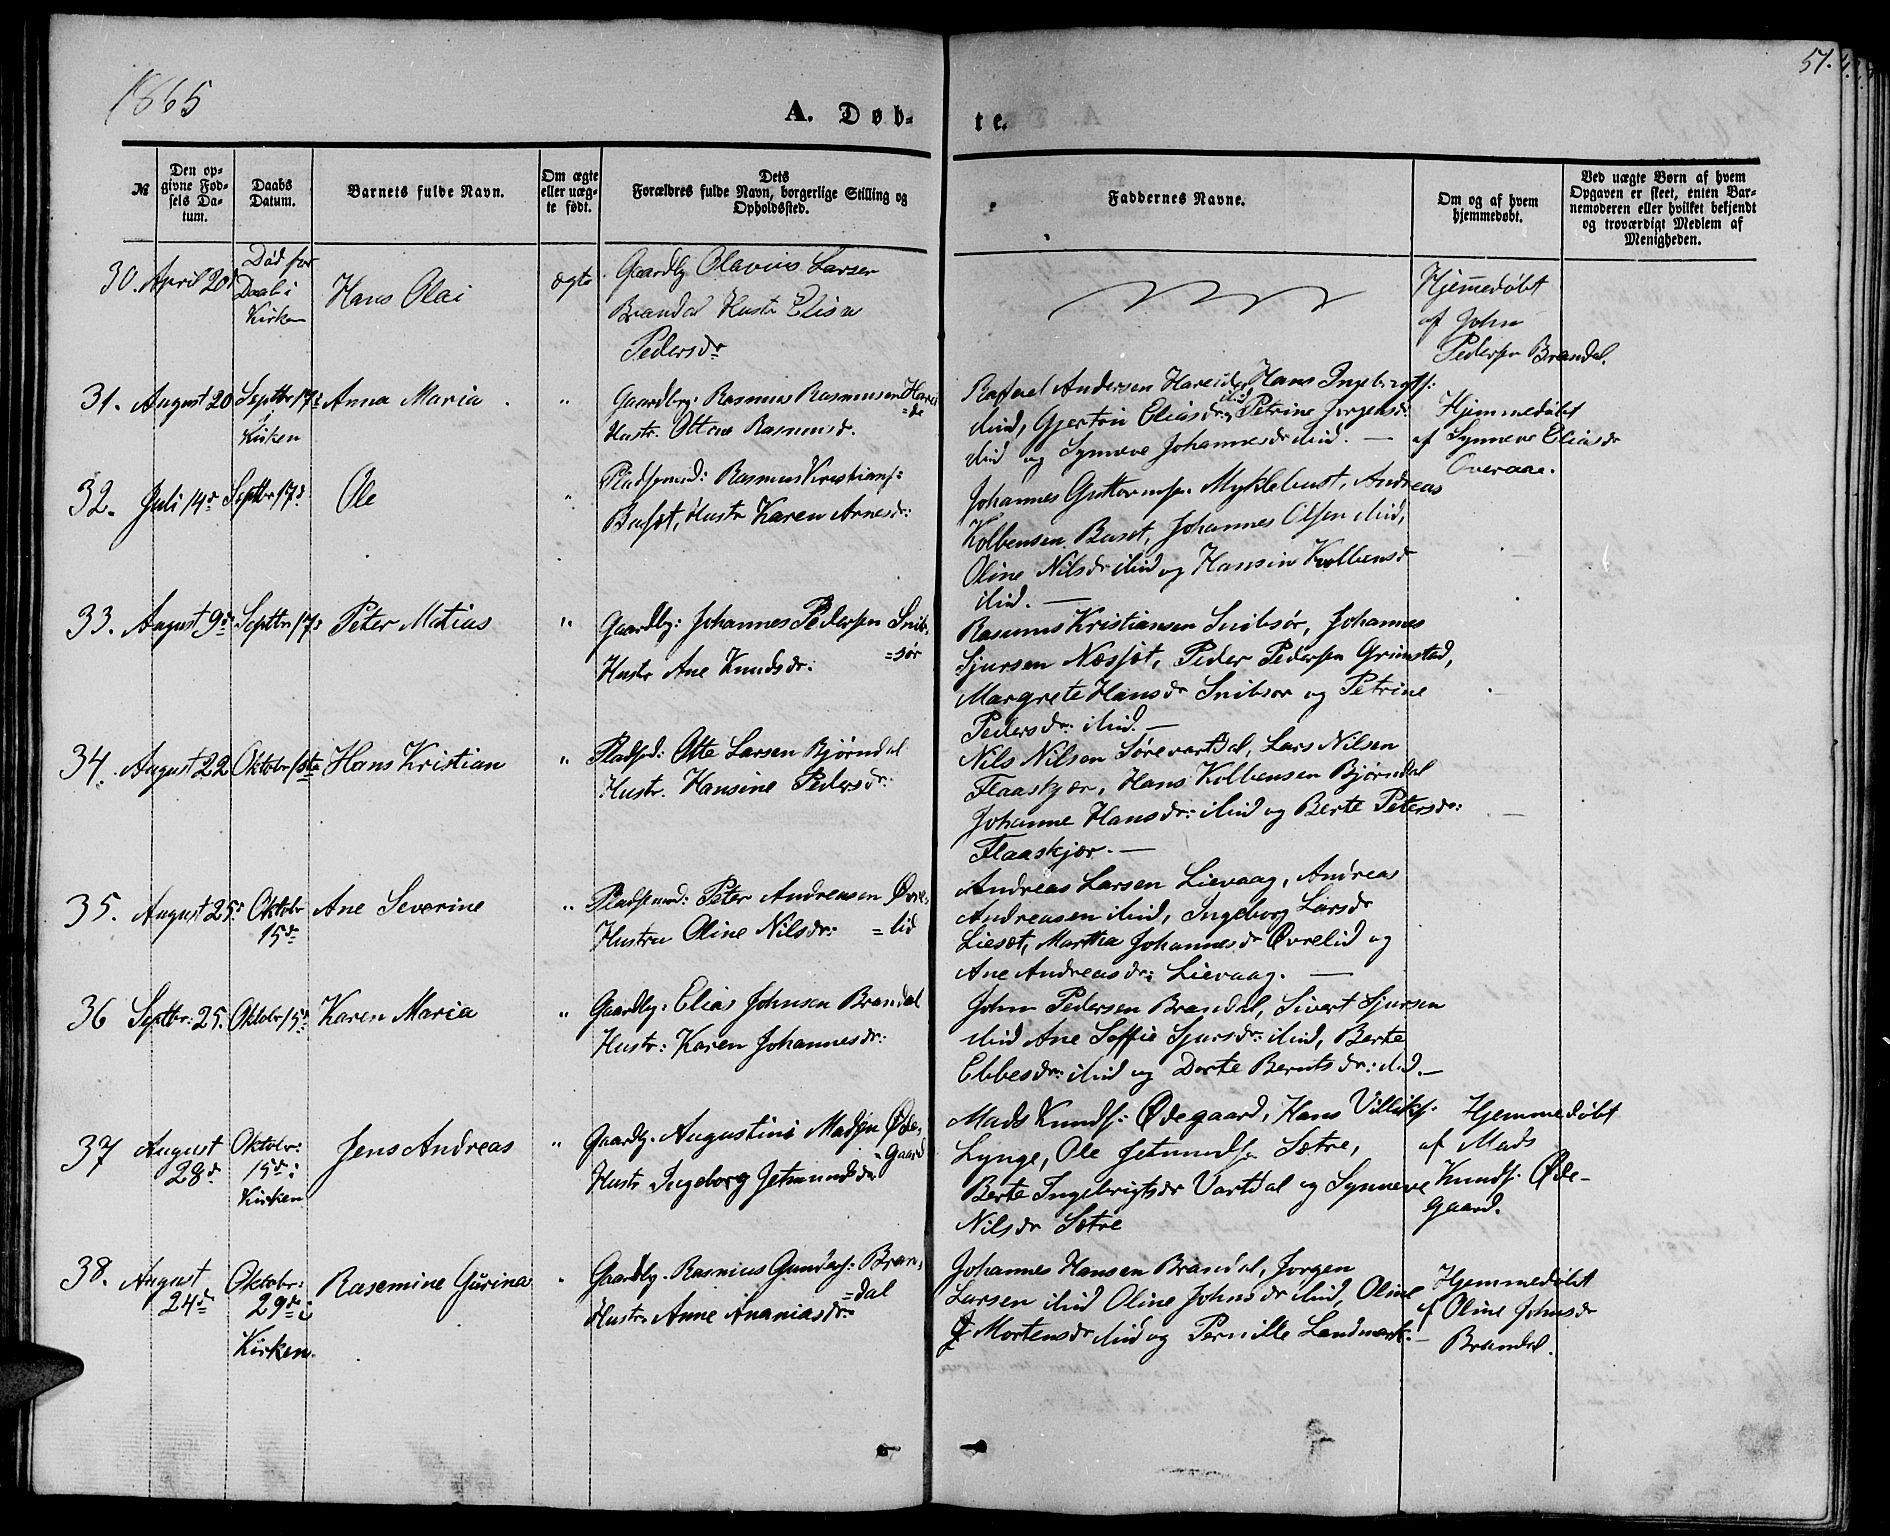 1865
51.
A. Døb-
te.
№
Den op-
givne Fød-
sels Da-
tum.
Daabs
Datum.
Barnets fulde Navn.
Om ægte
eller uæg-
te født.
Dets
Forældres fulde Navn, borgerlige Stilling og
Opholdssted.
Faddernes Navne.
Om og af hvem
hjemmedøbt.
Ved uægte Børn af hvem
Opgaven er skeet, enten Bar-
nemoderen eller hvilket bekjendt
og troværdigt Medlem af
Menigheden.
30. April 20d
Død før
Daab i
Kirken
Hans Olai
ægte
Gaardbr Olavius Larsen
Brandal Hustr Elisa
Pedersdr
Hjemmedøbt
af John
Pedersen Brandal.
31. August 20
Septbr 17d i
Kirken
Anna Maria
"
Gaardbrg: Rasmus Rasmussen Harei
=de
Hustr. Ottone Rasmusd.
Rafael Andersen Hareide, Hans Ingebrigts:
ibid, Gjertri Eliasdr ibid, Petrine Jørgensdr
ibid og Synneve Johannesdr ibid. —
Hjemmedøbt
af Synneve Eliasdr
Overaae.
32. Juli 14d Septbr 17d
Ole
"
Pladsmd: Rasmus Kristians:
Busæt, Hustr Karen Arnesdr:
Johannes Guttormsen Myklebust, Andreas
Kolbensen Buset, Johannes Olsen ibid,
Oline Nilsdr ibid og Hansin Kolbensdr
ibid. —
33. August 9d Septbr 17d
Peter Matias
"
Gaardbg: Johannes Pedersen Snib-
=sør
Hustr Ane Knudsdr:
Rasmus Kristiansen Snibsør, Johannes
Sjursen Næssæt, Peder Pedersen Grimstad,
Margrete Hansdr Snibsør og Petrine
Pedersdr: ibid. —
34. August 22 Oktobr 1ste
Hans Kristian
"
Pladsd: Otte Larsen Bjørndal
Hustr. Hansine Pedersdr:
Nils Nilsen Sørevartdal, Lars Nilsen
Flaaskjær, Hans Kolbensen Bjørndal
Johanne Hansdr: ibid og Berte Petersdr:
Flaaskjær. —
35. August 25d
Oktobr
15d
Ane Severine
"
Pladsmd: Peter Andreasen Øvre-
=lid
Hustru Oline Nilsdr:
Andreas Larsen Lievaag, Andreas
Andreasen ibid, Ingeborg Larsdr
Liesæt, Martha Johannesdr Øvrelid og
Ane Andreasdr: Lievaag. —
36 Septbr: 25. Oktobr 15d
Karen Maria
"
Gaardbg: Elias Johnsen Brandal
Hustr: Karen Johannesdr:
John Pedersen Brandal, Sivert Sjursen
ibid Ane Soffie Sjursdr: ibid, Berte
Ebbesdr: ibid og Dorte Berntsdr: ibid. —
37 August
28d
Oktobr:
15d i
Kirken
Jens Andreas
"
Gaardbg. Augustinus Madsen Øde-
=gaard
Hustr Ingeborg Jetmundsdr
Mads Knuds: Ødegaard, Hans Villiks:
Lynge, Ole Jetmunds Sætre,
Berte Ingebrigtsdr Vartdal og Synneve
Nilsdr Sætre
Hjemmedøbt
af Mads
Knuds: Øde-
gaard.
38. August
24d
Oktobr:
29d i
Kirken.
Rasemine Gurina
"
Gaardbg. Rasmus Gunders: Bran-
=dal
Hustr. Anne Ananiasdr:
Johannes Hansen Brandal, Jørgen
Larsen ibid Oline Johnsdr ibid, Oline
Mortensdr ibid og Pernille Landmark. —
Hjemmedøbt
af Oline Johnsdr
Brandal.